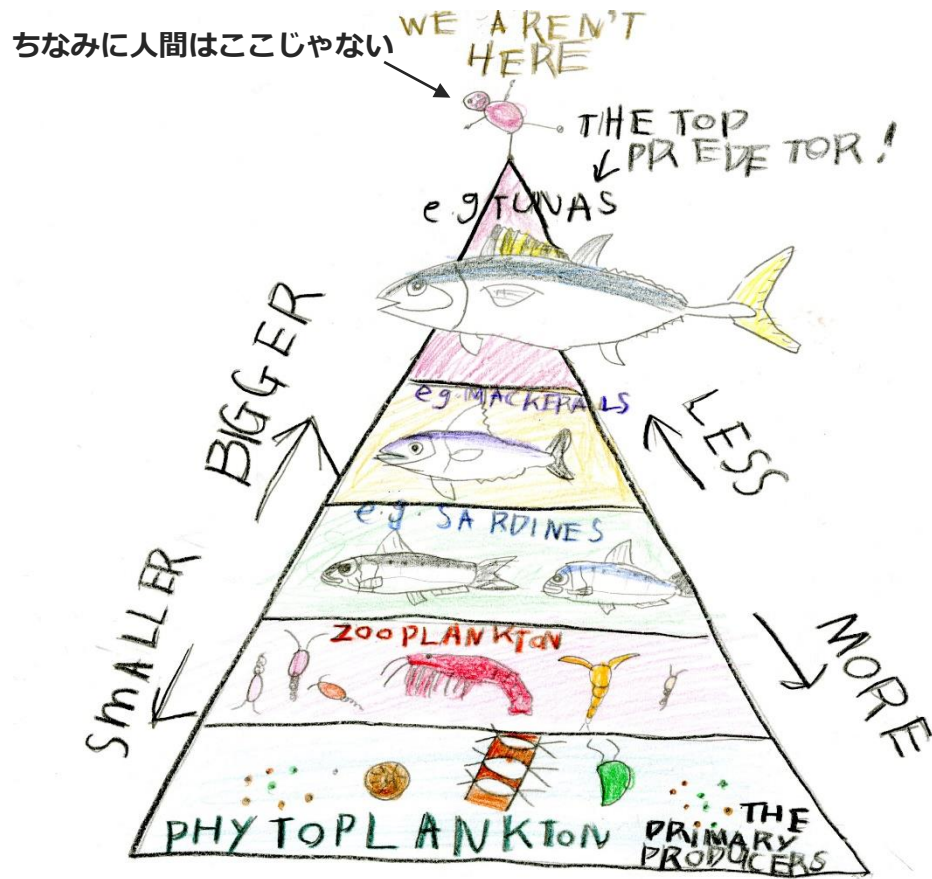 WE AREN'T
HERE
ちなみに人間はここじゃない
THE TOP
PREDETOR!
e.g TUNAS
BIGGER
LESS
eg. MACKERALS
e.g. SARDINES
SMALLER
MORE
ZOOPLANKTON
PHYTOPLANKTON
THE
PRIMARY
PRODUCERS